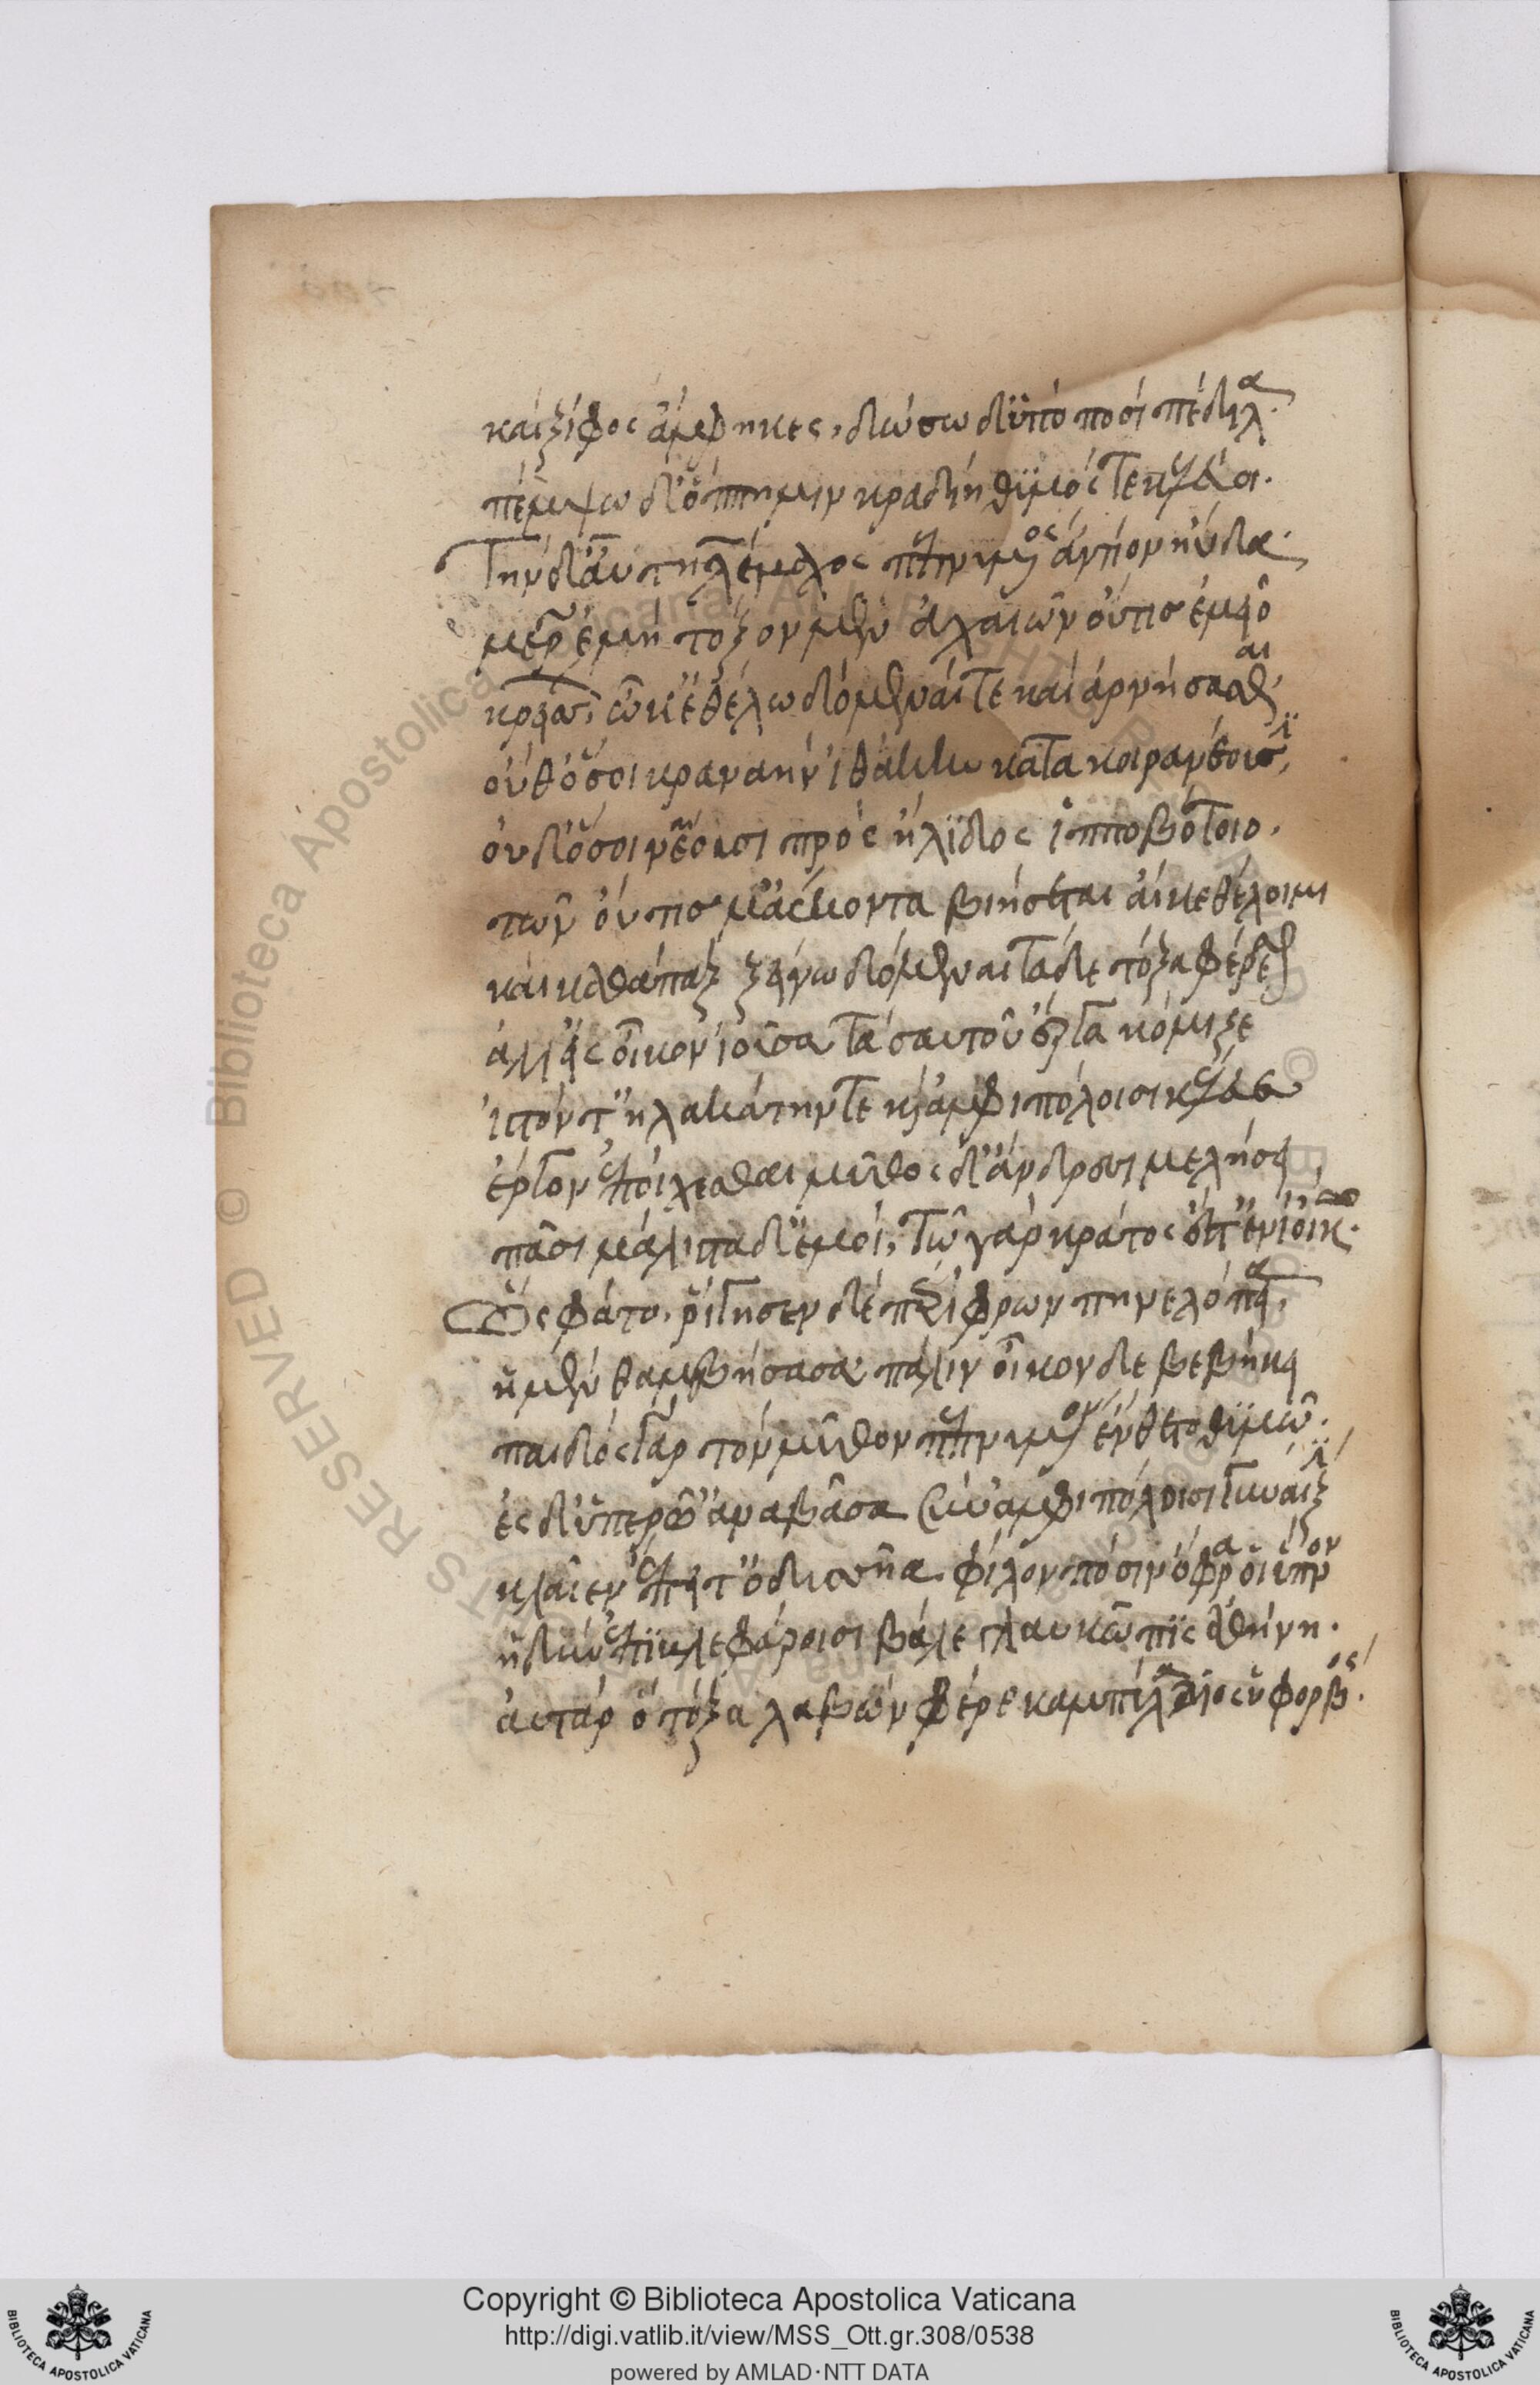 καὶ ξίφος ἄμφηκες, δώσω δ' ὑπὸ ποσὶ πέδιλα.
πέμψω δ' ὅππη μιν κραδίη θϋμός τε κελεύει.
Τὴν δ' αὖ τηλέμαχος πεπνυμένος ἀντίον ηὔδα·
μῆτερ ἐμὴ τόξον μὲν ἀχαιῶν οὔτις ἐμεῖο
κρείσσων ᾧ κ' ἐθέλω δόμεναί τε καὶ ἀρνήσασθαι,
οὔθ' ὅσσοι κραναὴν ἰθάκην κάτα κοιρανέουσϊ,
οὐδ' ὅσσοι νήσοισι πρὸς ἤλϊδος ἱπποβότοιο.
τῶν οὔτις μ' ἀέκοντα βιήσεται αἴ κε θέλοιμι
καὶ καθάπαξ ξείνω δόμεναι τάδε τόξα φέρεσθαι
ἀλλ' εἰς οἶκον ἰοῦσα τὰ σαυτοῦ ἔργα κόμιζε
ἱστόν τ' ἠλακάτην τε καὶ ἀμφιπόλοισι κέλευε
ἔργον ἐποίχεσθαι μῦθος δ' ἄνδρεσσι μελήσει,
πᾶσι μάλιστα δ' ἐμοί, τοῦ γὰρ κράτος ἔστ' ἐνὶ οἴκω.
Ὣς φάτο. ῥίγησεν δὲ περίφρων πηνελόπεια,
ἡ μὲν θαμβήσασα πάλιν οἶκον δὲ βεβήκει
παιδὸς γὰρ τὸν μῦθον πεπνυμένον ἔνθετο θϋμῶ.
ἐς δ' ὑπερῶ' ἀναβᾶσα σὺν ἀμφιπόλοισι γυναιξὶ
κλαῖεν ἔπειτ' ὀδυσῆα φίλον πόσιν ὄφρά οἱ ὕπνον
ἡδὺν ἐπὶ βλεφάροισι βάλε γλαυκῶπϊς ἀθήνη.
αὐτὰρ ὁ τόξα λαβὼν φέρε καμπύλα δῖος ὑφορβός.
Copyright © Biblioteca Apostolica Vaticana
http://digi.vatlib.it/view/MSS_Ott.gr.308/0538
powered by AMLAD·NTT DATA